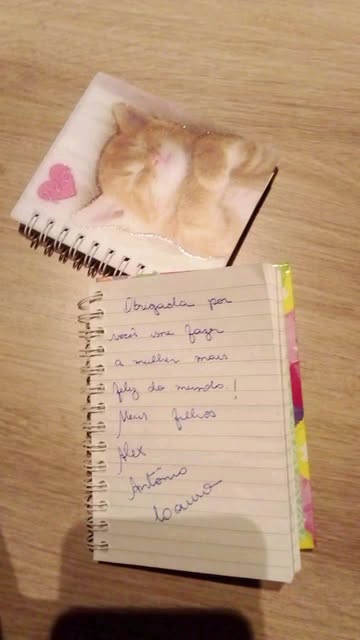 Obrigada por
você me fazer
a mulher mais
feliz do mundo!
Meus filhos
Alex
Antônio
Lauro